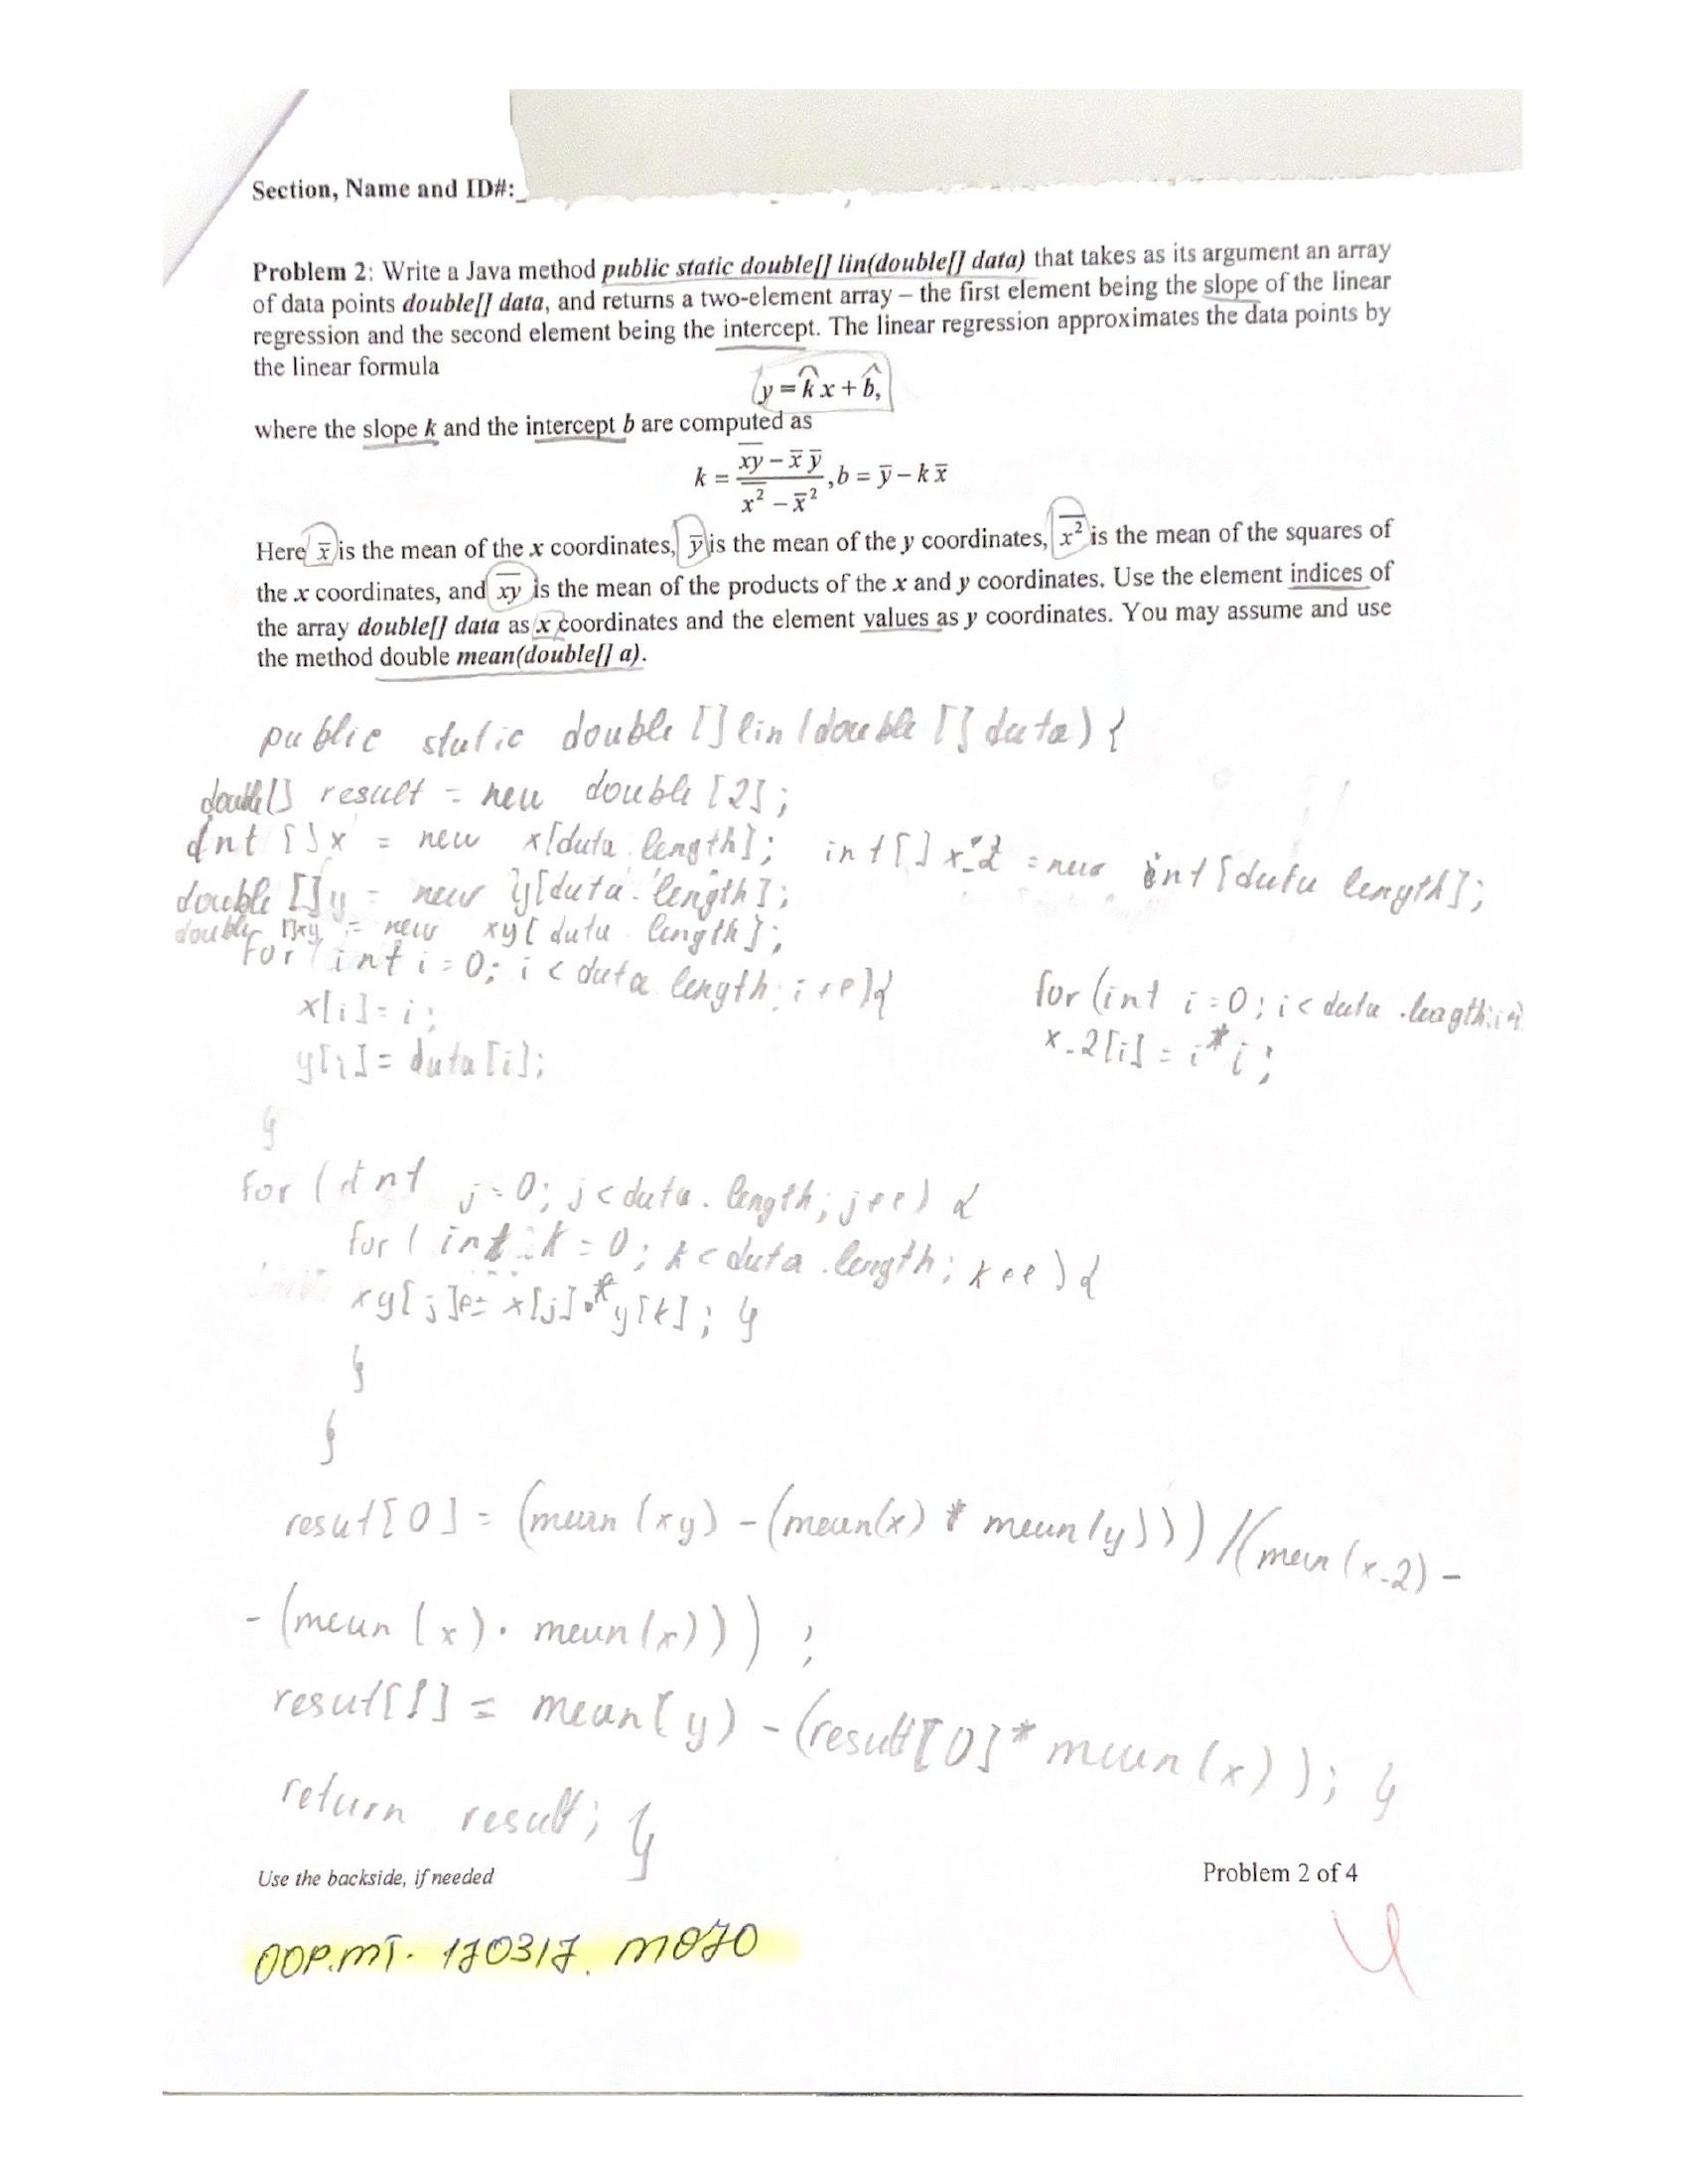 Section, Name and ID#:_
Problem 2: Write a Java method public static double[] lin(double[] data) that takes as its argument an array
of data points double[] data, and returns a two-element array – the first element being the slope of the linear
regression and the second element being the intercept. The linear regression approximates the data points by
the linear formula
y = k x + b,
where the slope k and the intercept b are computed as
k = (x̅y̅ − x̅ y̅) / (x̅²̅ − x̅²), b = y̅ − k x̅
Here x̅ is the mean of the x coordinates, y̅ is the mean of the y coordinates, x̅²̅ is the mean of the squares of
the x coordinates, and x̅y̅ is the mean of the products of the x and y coordinates. Use the element indices of
the array double[] data as x coordinates and the element values as y coordinates. You may assume and use
the method double mean(double[] a).
public static double [] lin (double [] data) {
double[] result = new double [2];
int [] x = new x[data.length]; int [] x_2 = new int [data length];
double [] y = new y[data.length];
double []xy = new xy[data.length];
for (int i = 0; i < data.length; i++){
x[i] = i;
y[i] = data[i];
}
for (int i = 0; i < data.length; i+
x_2[i] = i * i;
for (int j = 0; j < data.length; j++) {
for (int k = 0; k < data.length; k++) {
xy[j]+= x[j] * y[k]; }
}
}
resut[0] = (mean (xy) - (mean(x) * mean(y))) / (mean (x_2) -
- (mean (x) · mean(x))) ;
resut[1] = mean(y) - (result[0] * mean(x)); }
return result; }
Use the backside, if needed
Problem 2 of 4
OOP.MT. 170317. M070
4